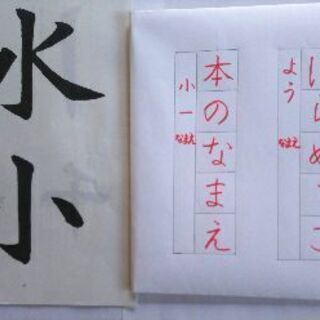 よう なまえ
本のなまえ
小一 なまえ
水小